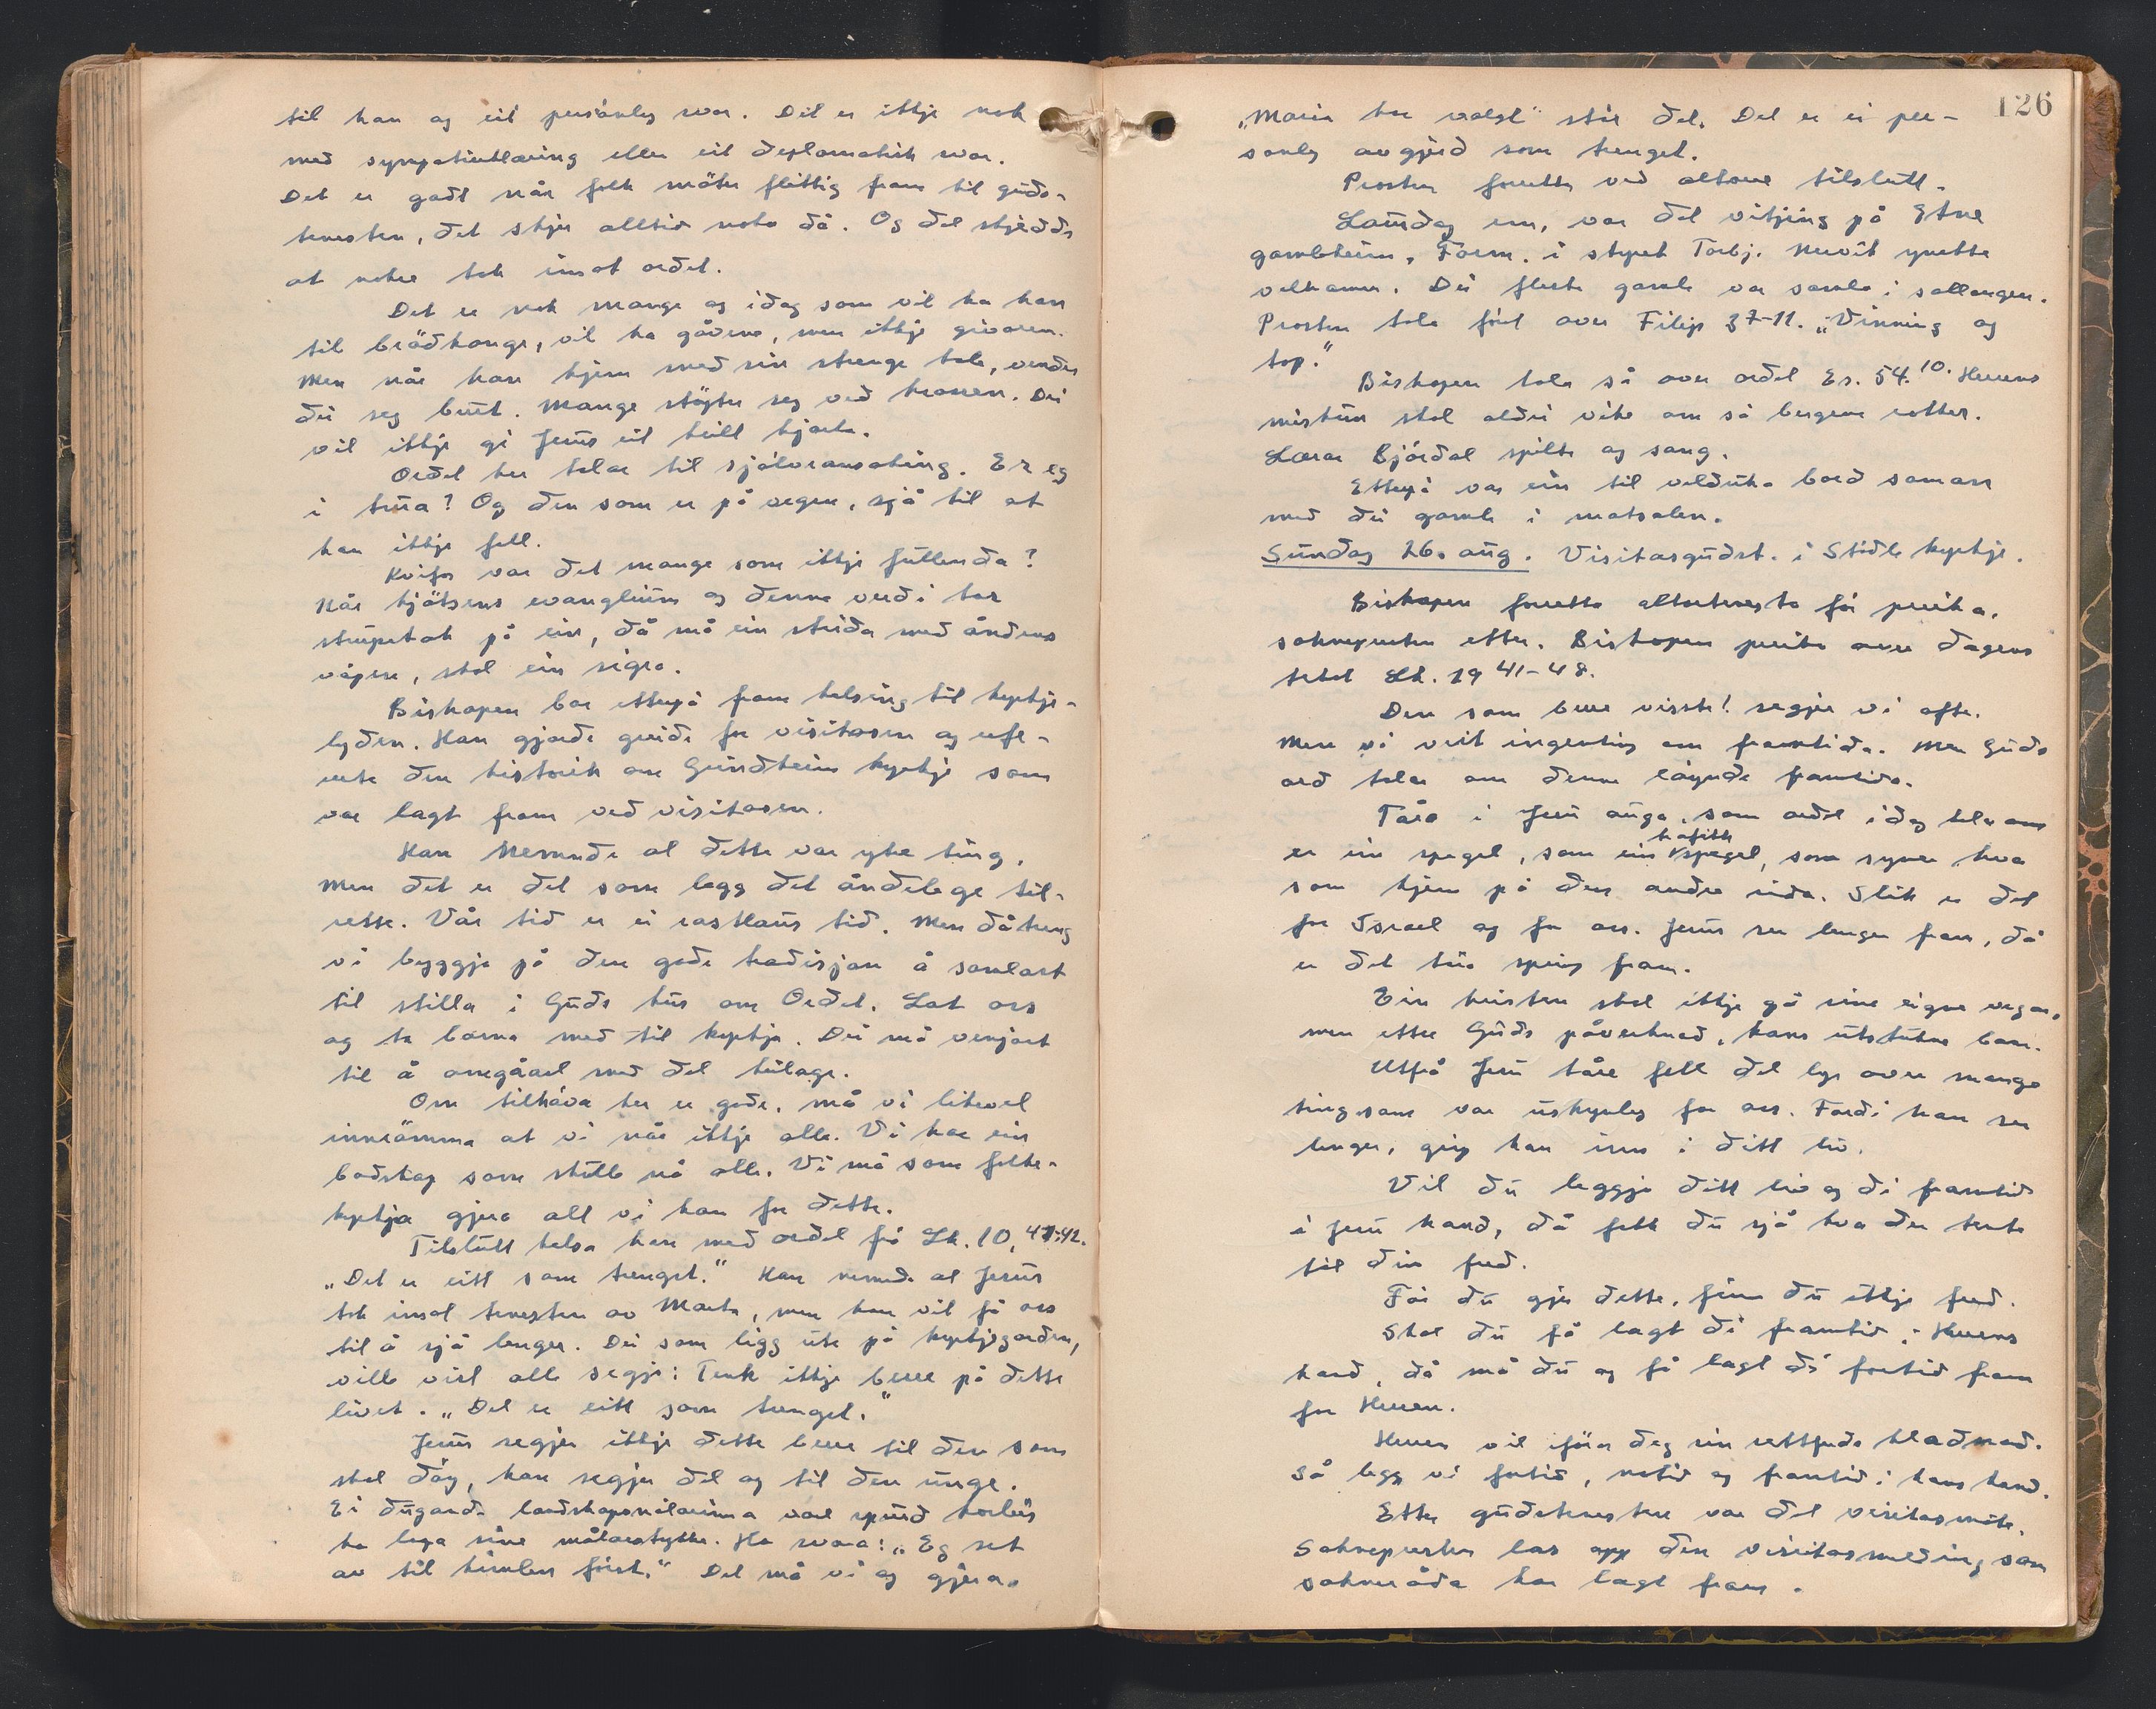 til han og eit personleg svar. Det er ikkje nok
med sympatierklæring eller eit deplomatisk svar.
Det er godt når folk möter flittig fram til guds-
tenesten, det skjer alltid noko då. Og det skjedde
at nokre tok imot ordet.
Det er nok mange og idag som vil ha han
til brödkonge, vil ha gåvene, men ikkje givaren.
Men når han kjem med sin strenge tale, vender
dei seg burt. Mange stöyter seg ved krossen. Dei
vil ikkje gi Jesus eit heilt hjarta.
Ordet her talar til sjølvransaking. Er eg
i trua? Og den som er på vegen, sjå til at
han ikkje fell.
Kvifor var det mange som ikkje fullenda?
Når kjötsens evanglium og denne verd i tar
strupetak på ein, då må ein strida med åndens
våpen, skal ein sigra.
Biskopen bar etterpå fram helsing til kyrkje-
lyden. Han gjorde greide for visitasen og refe-
rerte den historik om Grindheim kyrkje som
var lagt fram ved visitasen.
Han nemnde at dette var ytre ting,
men det er det som legg det åndelege til-
rette. Vår tid er ei rastlaus tid. Men då treng
vi byggja på den gode tradisjon å samlast
til stilla i Guds hus om Ordet. Lat oss
og ta borna med til kyrkja. Dei må venjast
til å omgåast med det heilage.
Om tilhöva her er gode, må vi likevel
innrömma at vi når ikkje alle. Vi har ein
bodskap som skulle nå alle. Vi må som folke-
kyrkja gjera alt vi kan for dette.
Tilslutt helsa han med ordet frå Lk. 10, 41-42.
„Det er eitt som trengst.” Han nemnde at Jesus
tok imot tenesten av Marta, men han vil få oss
til å sjå lenger. Dei som ligg ute på kyrkjegarden,
ville visst alle segja: Tenk ikkje berre på dette
livet. „Det er eitt som trengst.”
Jesus segjer ikkje dette berre til den som
skal döy, han segjer det og til den unge.
Ei dugande landskapsmålarinna vart spurd korleis
ho laga sine målarstykke. Ho svara: „Eg set
av til himlen först.” Det må vi og gjera.
126
„Maria har valgt” står det. Det er ei per-
sonleg avgjerd som trengst.
Prosten forretta ved altaret tilslutt.
Laurdag em, var det vitjing på Etne
gamleheim, Form. i styret Torbj. ynskte
velkomen. Dei fleste gamle var samla i sallongen.
Prosten tala først over Filip 3 7-11. „Vinning og
tap.”
Biskopen tala så over ordet Es. 54. 10. Herrens
miskun skal aldri vika om så bergene rokkes.
Lærar Bjørdal spilte og sang.
Etterpå var ein til velduka bord saman
med dei gamle i matsalen.
Sundag 26. aug. Visitasgudst. i Stødle kyrkje.
Biskopen forretta altarteneste før preika,
soknepresten etter. Biskopen preika over dagens
tekst Lk. 19 41-48.
Den som berre visste! segjer vi ofte.
Men vi veit ingenting om framtida. Men Guds
ord talar om denne løynde framtida.
Tåra i Jesu auga, som ordet idag talar om
er ein spegel, som ein trafikk spegel, som syner kva
som kjem på den andre sida. Slik er det
for Israel og for oss. Jesus ser lenger fram, då
er det tåra spring fram.
Ein kristen skal ikkje gå sine eigne vegar,
men etter Guds påverknad, hans utstukne bane.
Utfrå Jesu tåre fell det lys over mange
ting som var uskynleg for oss. Fordi han ser
lenger, grip han inn i ditt liv.
Vil du leggja ditt liv og di framtid
i Jesu hand, då fekk du sjå kva der tente
til din fred.
Før du gjer dette, finn du ikkje fred.
Skal du få lagt di framtid i Herrens
hand, då må du og få lagt di fortid fram
for Herren.
Herren vil iføra deg ein rettferds kladnad.
Så legg vi fortid, notid og framtid i hans hand.
Etter gudstenesten var det visitasmöte.
Soknepresten las opp den visitasmelding som
sokneråda har lagt fram.